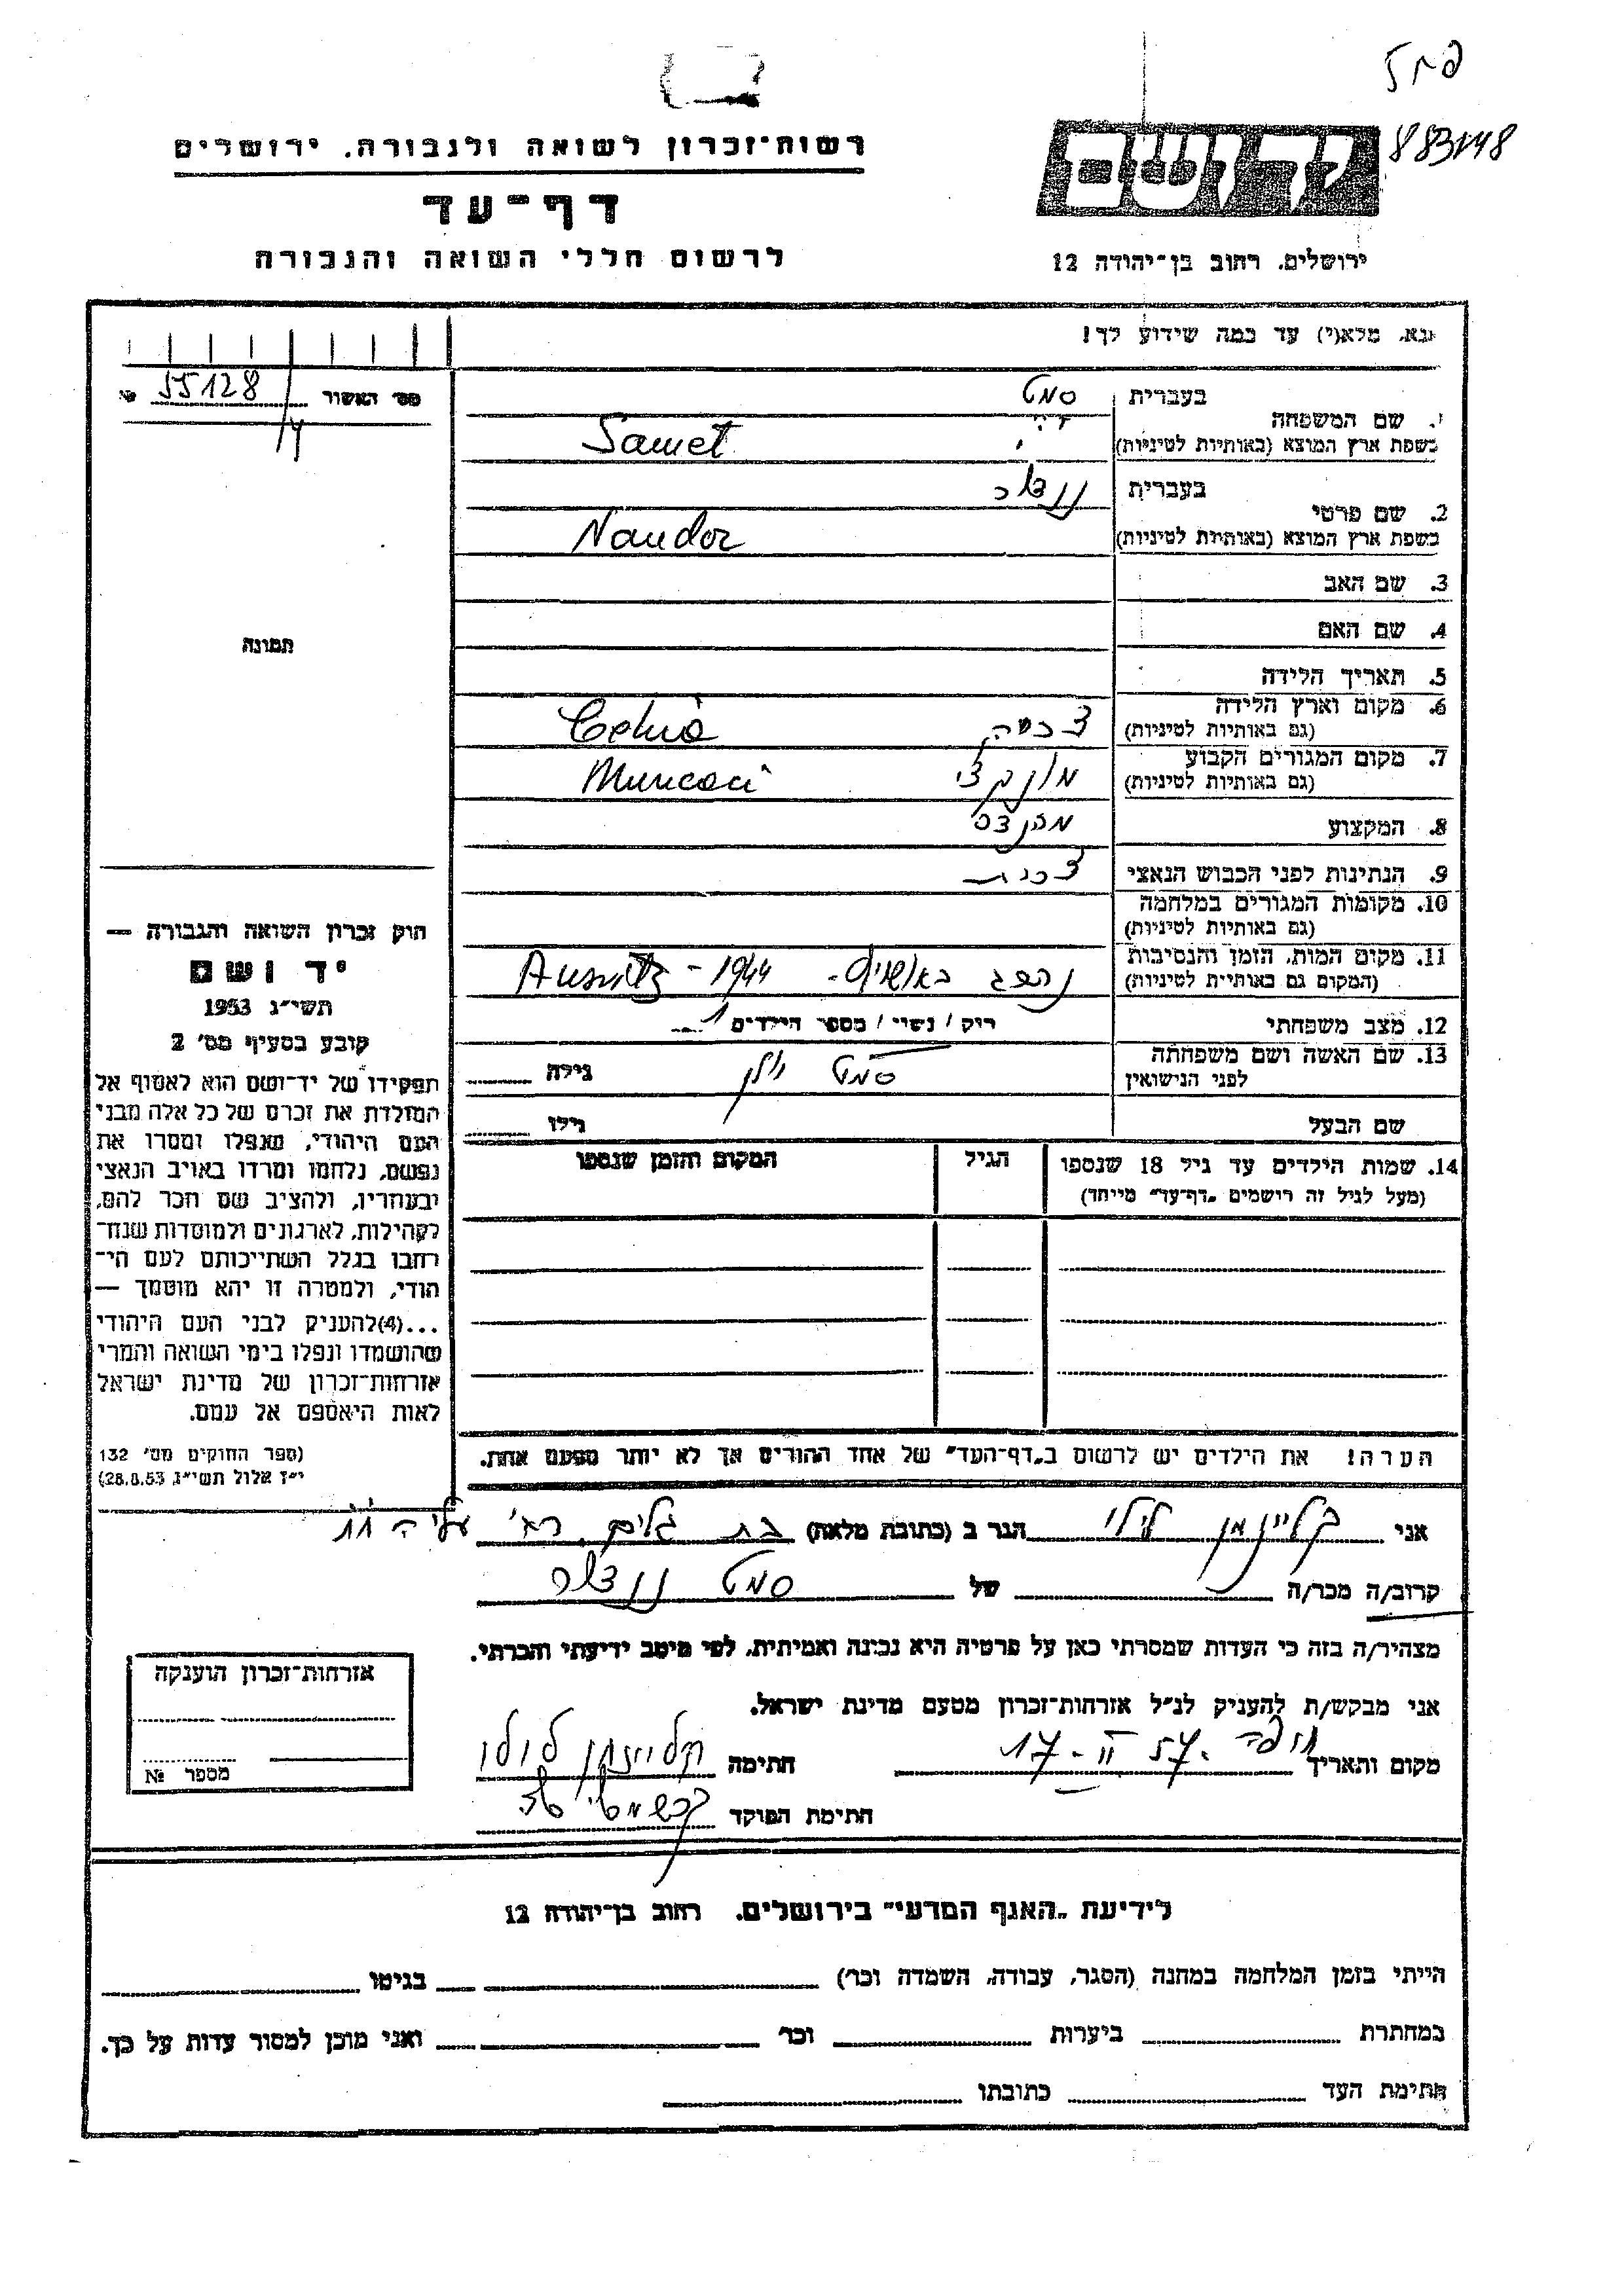 רשות־זכרון לשואה ולגבורה. ירושלים
דף־עד
לרשום חללי השואה והגבורה
883148
ירושלים. רחוב בן־יהודה 12
נא. מלא(י) עד כמה שידוע לך!
מס׳ האשור 55128 №
1. שם המשפחה
בעברית סמט
בשפת ארץ המוצא (באותיות לטיניות) Samet
2. שם פרטי
בעברית ננדור
בשפת ארץ המוצא (באותיות לטיניות) Nandor
3. שם האב
4. שם האם
תמונה
5. תאריך הלידה
6. מקום וארץ הלידה
(גם באותיות לטיניות) צ׳כיה Cehia
7. מקום המגורים הקבוע
(גם באותיות לטיניות) מונקצ׳י Muncaci
8. המקצוע מהנדס
9. הנתינות לפני הכבוש הנאצי צ׳כית
10. מקומות המגורים במלחמה
(גם באותיות לטיניות)
11. מקום המות. הזמן והנסיבות
(המקום גם באותיות לטיניות) נהרג באושויץ - 1944 - Ausvitz
12. מצב משפחתי רוק / נשוי / מספר הילדים 1
13. שם האשה ושם משפחתה
לפני הנישואין סמט גילה
שם הבעל גילו
14. שמות הילדים עד גיל 18 שנספו הגיל המקום והזמן שנספו
(מעל לגיל זה רישמים „דף־עד” מייחד)
הערה! את הילדים יש לרשום ב„דף־העד” של אחד ההורים אך לא יותר מפעם אחת.
חוק זכרון השואה והגבורה —
יד ושם
תשי״ג 1953
קובע בסעיף מס׳ 2
תפקידו של יד־ושם הוא לאסוף אל
המולדת את זכרם של כל אלה מבני
העם היהודי, שנפלו ומסרו את
נפשם, נלחמו ומרדו באויב הנאצי
ובעוזריו, ולהציב שם וזכר להם,
לקהילות, לארגונים ולמוסדות שנח־
רבו בגלל השתייכותם לעם הי־
הודי, ולמטרה זו יהא מוסמך —
...(4)להעניק לבני העם היהודי
שהושמדו ונפלו בימי השואה והמרי
אזרחות־זכרון של מדינת ישראל
לאות היאספם אל עמם.
(ספר החוקים מס׳ 132
י״ז אלול תשי״ג 28.8.53)
אני קליינמן לילי הגר ב (כתובת מלאה) בת גלים, רח׳ עליה
קרוב/ה מכר/ה של סמט ננדור
מצהיר/ה בזה כי העדות שמסרתי כאן על פרטיה היא נכונה ואמיתית, לפי מיטב ידיעתי והכרתי.
אני מבקש/ת להעניק לנ״ל אזרחות־זכרון מטעם מדינת ישראל.
מקום ותאריך חיפה 17-II-57. חתימה קליינמן לילי
חתימת הפוקד
אזרחות־זכרון הוענקה
מספר №
לידיעת „האגף המדעי” בירושלים. רחוב בן־יהודה 12
הייתי בזמן המלחמה במחנה (הסגר, עבודה, השמדה וכו׳) בגיטו
במחתרת ביערות וכו׳ ואני מוכן למסור עדות על כך.
חתימת העד כתובתו